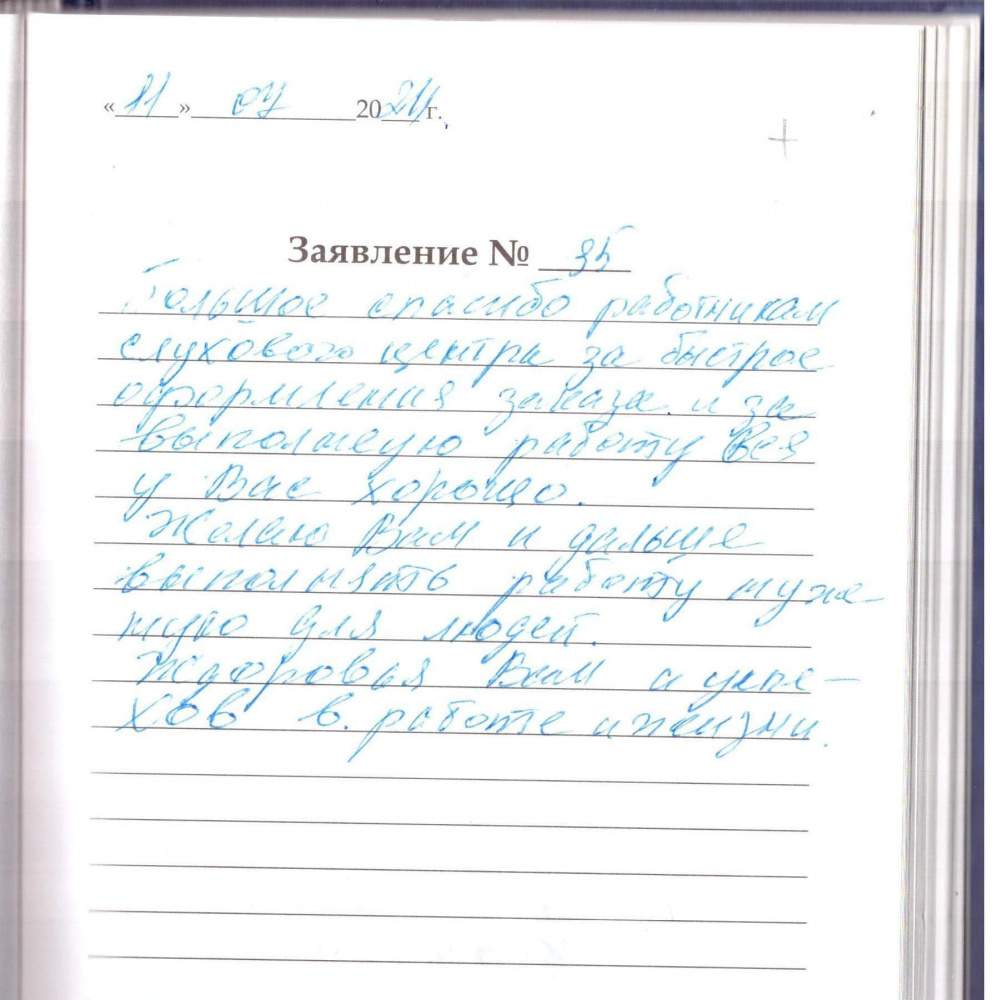 «11» 07 2024 г.
Заявление № 35
Большое спасибо работникам
слухового центра за быстрое
оформления заказа и за
выполнеую работу Все
у Вас хорошо.
Желаю Вам и дальше
выполнять работу нуже-
ную для людей.
Здоровья Вам и успе-
хов в работе и жизни.